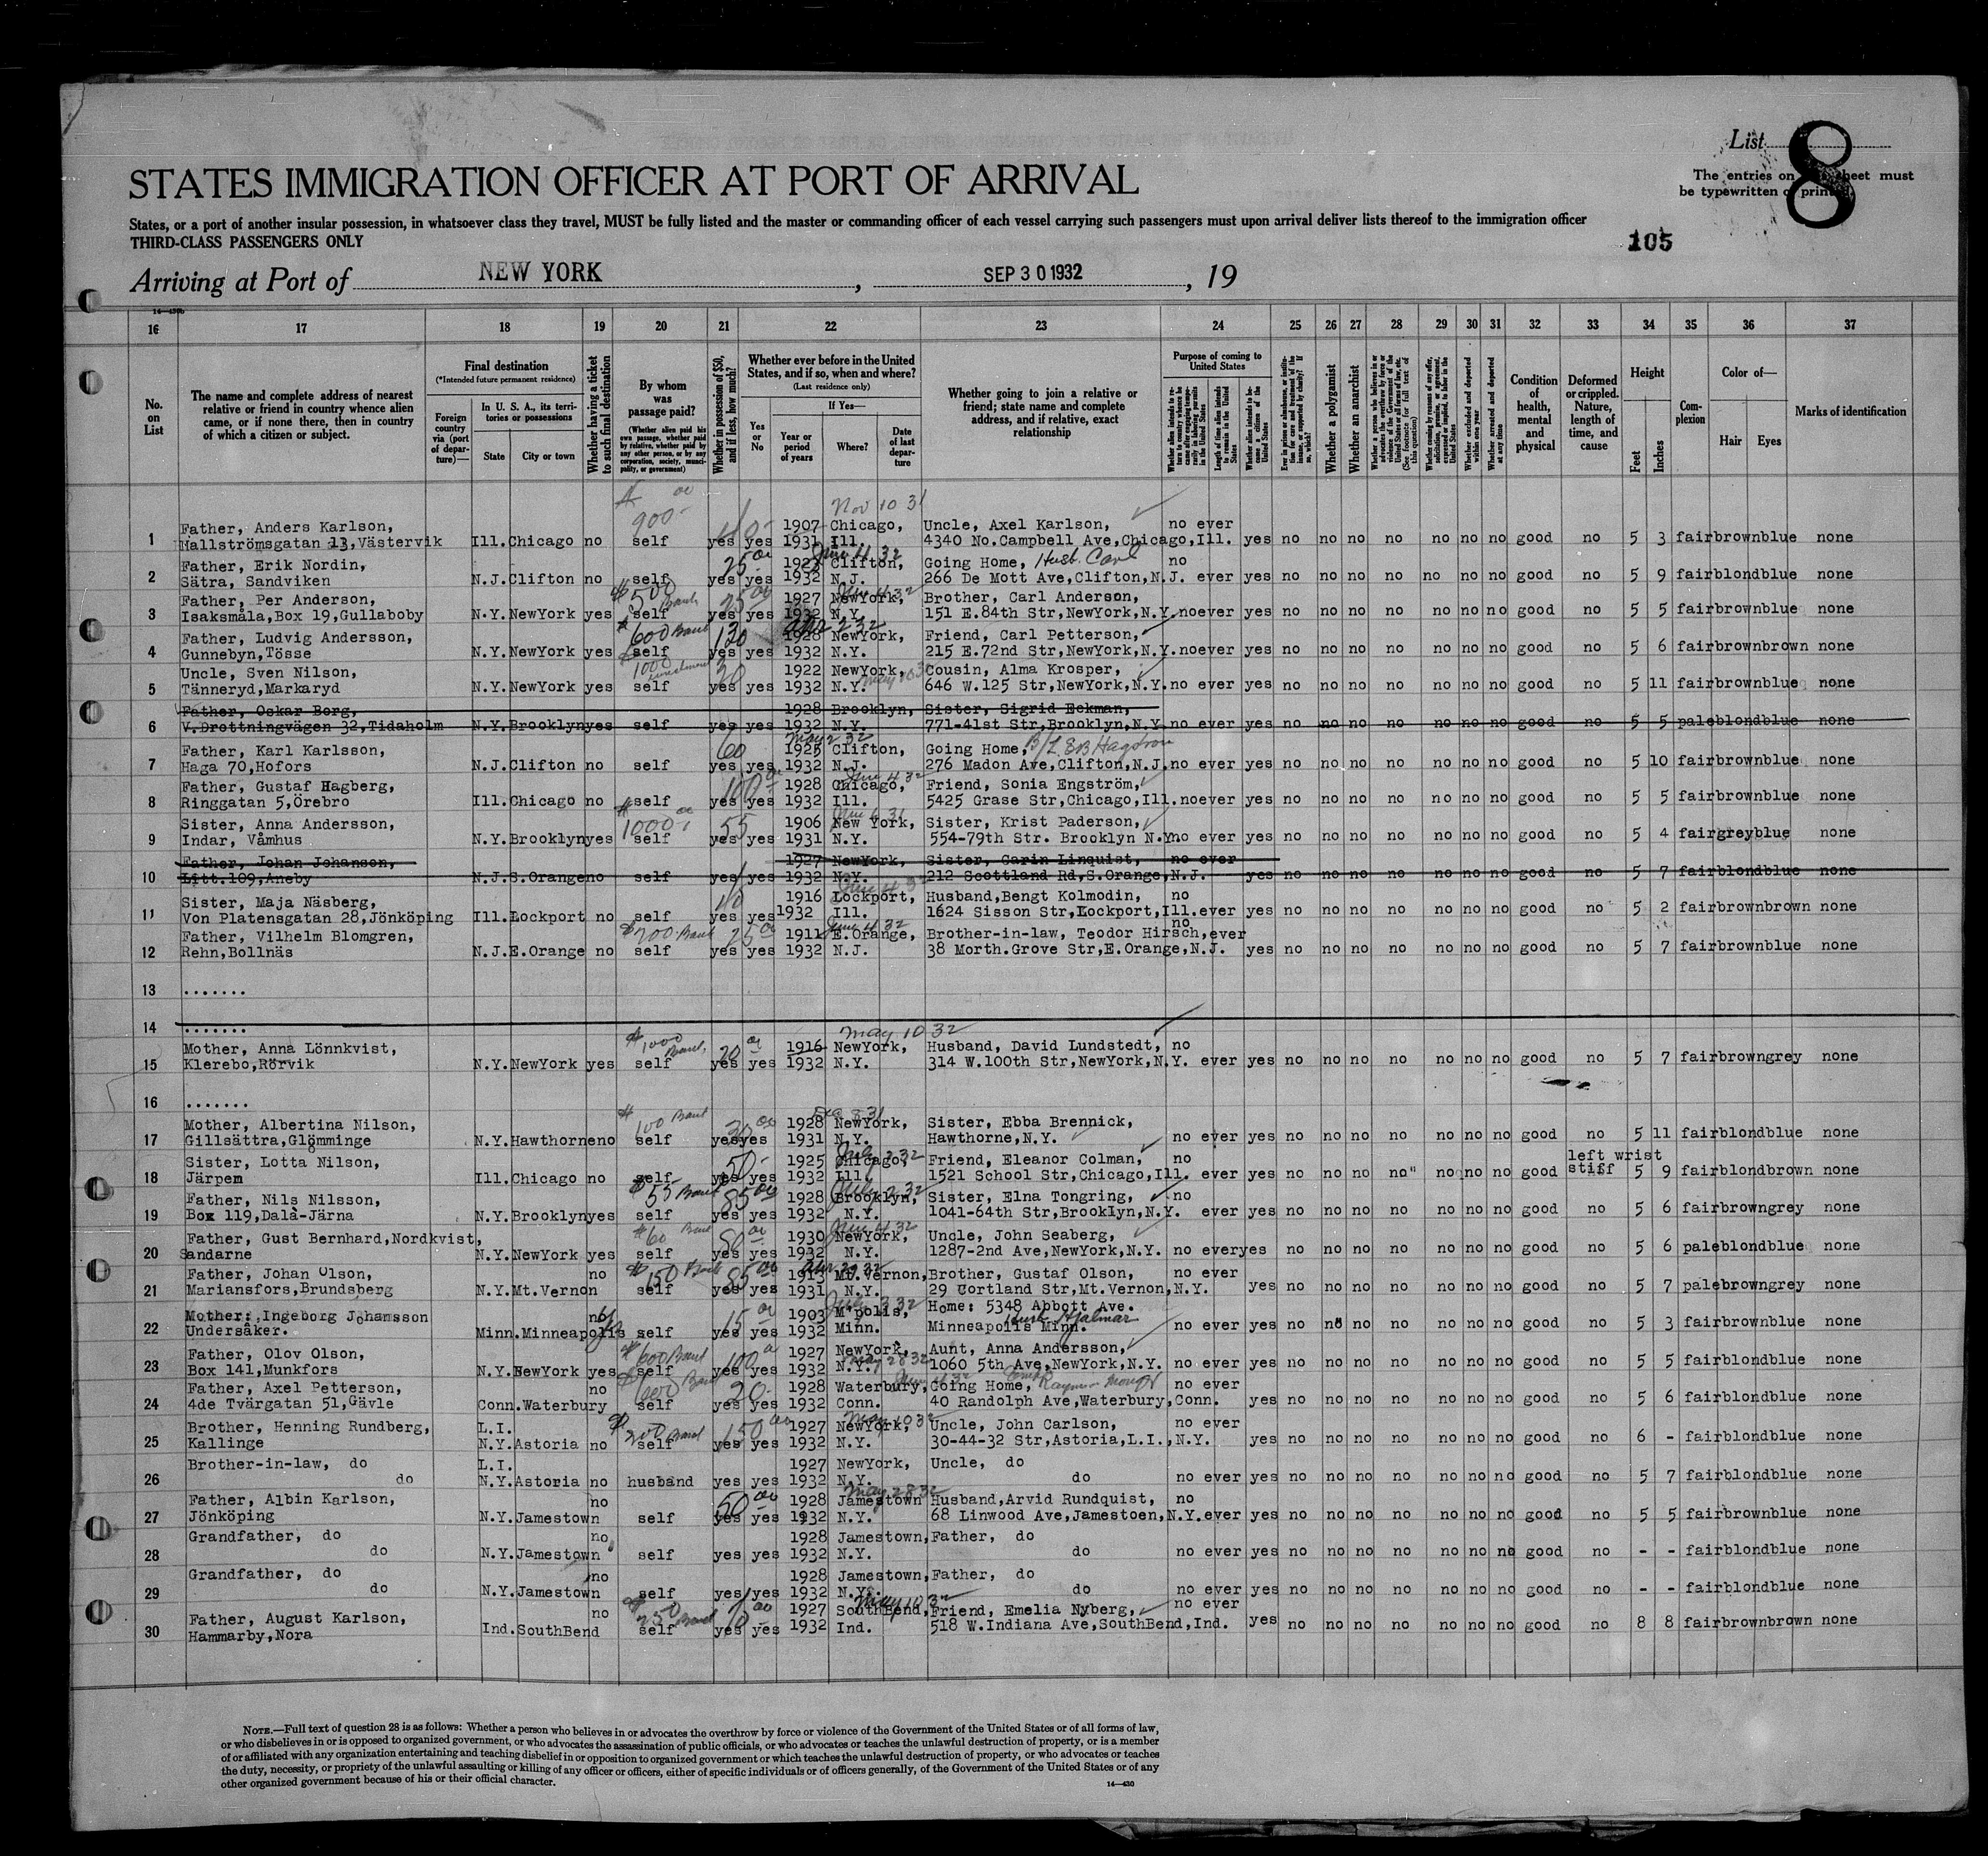 List 8
The entries on this sheet must
be typewritten or printed.
STATES IMMIGRATION OFFICER AT PORT OF ARRIVAL
States, or a port of another insular possession, in whatsoever class they travel, MUST be fully listed and the master or commanding officer of each vessel carrying such passengers must upon arrival deliver lists thereof to the immigration officer
THIRD-CLASS PASSENGERS ONLY
105
Arriving at Port of NEW YORK, SEP 30 1932, 19
16 17 18 19 20 21 22 23 24 25 26 27 28 29 30 31 32 33 34 35 36 37
No. on List
The name and complete address of nearest relative or friend in country whence alien came, or if none there, then in country of which a citizen or subject.
Final destination
(*Intended future permanent residence)
Foreign country via (port of departure)—
In U. S. A., its territories or possessions
State
City or town
Whether having a ticket to such final destination
By whom was passage paid?
(Whether alien paid his own passage, whether paid by relative, whether paid by any other person, or by any corporation, society, municipality, or government)
Whether in possession of $50, and if less, how much?
Whether ever before in the United States, and if so, when and where?
(Last residence only)
Yes or No
If Yes—
Year or period of years
Where?
Date of last departure
Whether going to join a relative or friend; state name and complete address, and if relative, exact relationship
Purpose of coming to United States
Length of time alien intends to remain in the United States
Whether alien intends to become a citizen of the United States
Whether a polygamist
Whether an anarchist
Whether excluded and deported within one year
Whether arrested and deported at any time
Condition of health, mental and physical
Deformed or crippled. Nature, length of time, and cause
Height
Feet
Inches
Complexion
Color of—
Hair
Eyes
Marks of identification
900 Nov 10 31
Father, Anders Karlson, 1907 Chicago, Uncle, Axel Karlson, no ever
1 Hallströmsgatan 13,Västervik Ill. Chicago no self yes yes 1931 Ill. 4340 No.Campbell Ave,Chicago,Ill. yes no no no no no no no good no 5 3 fair brown blue none
Father, Erik Nordin, 25 Clifton, Going Home, Husb. Carl no
2 Sätra, Sandviken N.J. Clifton no self yes yes 1932 N.J. 266 De Mott Ave,Clifton,N.J. ever yes no no no no no no no good no 5 9 fair blond blue none
Father, Per Anderson, $500 Bank 1927 NewYork, Brother, Carl Anderson,
3 Isaksmåla,Box 19,Gullaboby N.Y. NewYork yes self yes yes 1932 N.Y. 151 E.84th Str,NewYork,N.Y. no ever yes no no no no no no no good no 5 5 fair brown blue none
Father, Ludvig Andersson, $600 Bank 130 1928 NewYork, Friend, Carl Petterson,
4 Gunnebyn,Tösse N.Y. NewYork yes self yes yes 1932 N.Y. 215 E.72nd Str,NewYork,N.Y. no ever yes no no no no no no no good no 5 6 fair brown brown none
Uncle, Sven Nilson, 1000 1922 NewYork, Cousin, Alma Krosper,
5 Tänneryd,Markaryd N.Y. NewYork yes self yes yes 1932 N.Y. 646 W.125 Str,NewYork,N.Y. no ever yes no no no no no no no good no 5 11 fair brown blue none
Father, Oskar Borg, 1928 Brooklyn, Sister, Sigrid Eckman,
6 V.Drottningvägen 32,Tidaholm N.Y. Brooklyn yes self yes yes 1932 N.Y. 771-41st Str,Brooklyn,N.Y. no ever yes no no no no no no no good no 5 5 pale blond blue none
Father, Karl Karlsson, 60 May 2 32 1925 Clifton, Going Home,
7 Haga 70,Hofors N.J. Clifton no self yes yes 1932 N.J. 276 Madon Ave,Clifton,N.J. no ever yes no no no no no no no good no 5 10 fair brown blue none
Father, Gustaf Hagberg, 100 1928 Chicago, Friend, Sonia Engström,
8 Ringgatan 5,Örebro Ill. Chicago no self yes yes 1932 Ill. 5425 Grase Str,Chicago,Ill. no ever yes no no no no no no no good no 5 5 fair brown blue none
Sister, Anna Andersson, $1000 55 1906 New York, Sister, Krist Paderson,
9 Indar, Våmhus N.Y. Brooklyn yes self yes yes 1931 N.Y. 554-79th Str. Brooklyn N.Y. no ever yes no no no no no no no good no 5 4 fair grey blue none
Father, Johan Johanson, 1927 NewYork, Sister, Carin Linquist, no ever
10 Litt.109,Aneby N.J. S.Orange no self yes yes 1932 N.Y. 212 Scottland Rd,S.Orange,N.J. yes no no no no no no no good no 5 7 fair blond blue none
Sister, Maja Näsberg, 1916 Lockport, Husband,Bengt Kolmodin, no
11 Von Platensgatan 28,Jönköping Ill. Lockport no self yes yes 1932 Ill. 1624 Sisson Str,Lockport,Ill. ever yes no no no no no no no good no 5 2 fair brown brown none
Father, Vilhelm Blomgren, $200 Bank 25 1911 E.Orange, Brother-in-law, Teodor Hirsch, no ever
12 Rehn,Bollnäs N.J. E.Orange no self yes yes 1932 N.J. 38 Morth.Grove Str,E.Orange,N.J. yes no no no no no no no good no 5 7 fair brown blue none
13 .......
14 .......
Mother, Anna Lönnkvist, $1000 Bank 20 May 10 32 1916 NewYork, Husband, David Lundstedt, no
15 Klerebo,Rörvik N.Y. NewYork yes self yes yes 1932 N.Y. 314 W.100th Str,NewYork,N.Y. ever yes no no no no no no no good no 5 7 fair brown grey none
16 .......
Mother, Albertina Nilson, $100 Bank 30 1928 NewYork, Sister, Ebba Brennick,
17 Gillsättra,Glömminge N.Y. Hawthorne no self yes yes 1931 N.Y. Hawthorne,N.Y. no ever yes no no no no no no no good no 5 11 fair blond blue none
Sister, Lotta Nilson, 50 1925 Chicago, Friend, Eleanor Colman, no left wrist
18 Järpem Ill. Chicago no self yes yes 1932 Ill. 1521 School Str,Chicago,Ill. ever yes no no no no no no no good stiff 5 9 fair blond brown none
Father, Nils Nilsson, $55 Bank 85 1928 Brooklyn, Sister, Elna Tongring, no
19 Box 119,Dala-Järna N.Y. Brooklyn yes self yes yes 1932 N.Y. 1041-64th Str,Brooklyn,N.Y. ever yes no no no no no no no good no 5 6 fair brown grey none
Father, Gust Bernhard,Nordkvist, $60 Bank 80 1930 NewYork, Uncle, John Seaberg,
20 Sandarne N.Y. NewYork yes self yes yes 1932 N.Y. 1287-2nd Ave,NewYork,N.Y. no ever yes no no no no no no no good no 5 6 pale blond blue none
Father, Johan Olson, no $150 Bank 85 1913 Mt.Vernon, Brother, Gustaf Olson, no ever
21 Mariansfors,Brundsberg N.Y. Mt.Vernon self yes yes 1931 N.Y. 29 Cortland Str,Mt.Vernon,N.Y. yes no no no no no no no good no 5 7 pale brown grey none
Mother, Ingeborg Johansson no 15 1903 M'polis, Home: 5348 Abbott Ave.
22 Undersåker. Minn. Minneapolis self yes yes 1932 Minn. Minneapolis Minn. Husb Hjalmar no ever yes no no no no no no no good no 5 3 fair brown blue none
Father, Olov Olson, $600 Bank 100 1927 NewYork, Aunt, Anna Andersson,
23 Box 141,Munkfors N.Y. NewYork yes self yes yes 1932 N.Y. May 28 32 1060 5th Ave,NewYork,N.Y. no ever yes no no no no no no no good no 5 5 fair blond blue none
Father, Axel Petterson, no $600 Bank 20 1928 Waterbury, Going Home, no ever
24 4de Tvärgatan 51,Gävle Conn. Waterbury self yes yes 1932 Conn. 40 Randolph Ave,Waterbury,Conn. yes no no no no no no no good no 5 6 fair blond blue none
Brother, Henning Rundberg, L.I. $200 Bank 150 1927 NewYork, May 10 32 Uncle, John Carlson, no ever
25 Kallinge N.Y. Astoria no self yes yes 1932 N.Y. 30-44-32 Str,Astoria,L.I.,N.Y. yes no no no no no no no good no 6 - fair blond blue none
Brother-in-law, do L.I. 1927 NewYork, Uncle, do
26 do N.Y. Astoria no husband yes yes 1932 N.Y. do no ever yes no no no no no no no good no 5 7 fair blond blue none
Father, Albin Karlson, no 50 May 28 32 1928 Jamestown Husband,Arvid Rundquist, no
27 Jönköping N.Y. Jamestown self yes yes 1932 N.Y. 68 Linwood Ave,Jamestoen,N.Y. ever yes no no no no no no no good no 5 5 fair brown blue none
Grandfather, do no 1928 Jamestown, Father, do
28 do N.Y. Jamestown self yes yes 1932 N.Y. do no ever yes no no no no no no no good no - - fair blond blue none
Grandfather, do no 1928 Jamestown, Father, do
29 do N.Y. Jamestown self yes yes 1932 N.Y. do no ever yes no no no no no no no good no - - fair blond blue none
Father, August Karlson, no $250 Bank 70 May 10 32 1927 SouthBend, Friend, Emelia Nyberg, no ever
30 Hammarby,Nora Ind. SouthBend self yes yes 1932 Ind. 518 W.Indiana Ave,SouthBend,Ind. yes no no no no no no no good no 8 8 fair brown brown none
NOTE.—Full text of question 28 is as follows: Whether a person who believes in or advocates the overthrow by force or violence of the Government of the United States or of all forms of law,
or who disbelieves in or is opposed to organized government, or who advocates the assassination of public officials, or who advocates or teaches the unlawful destruction of property, or is a member
of or affiliated with any organization entertaining and teaching disbelief in or opposition to organized government or which teaches the unlawful destruction of property, or who advocates or teaches
the duty, necessity, or propriety of the unlawful assaulting or killing of any officer or officers, either of specific individuals or of officers generally, of the Government of the United States or of any
other organized government because of his or their official character.
14—430